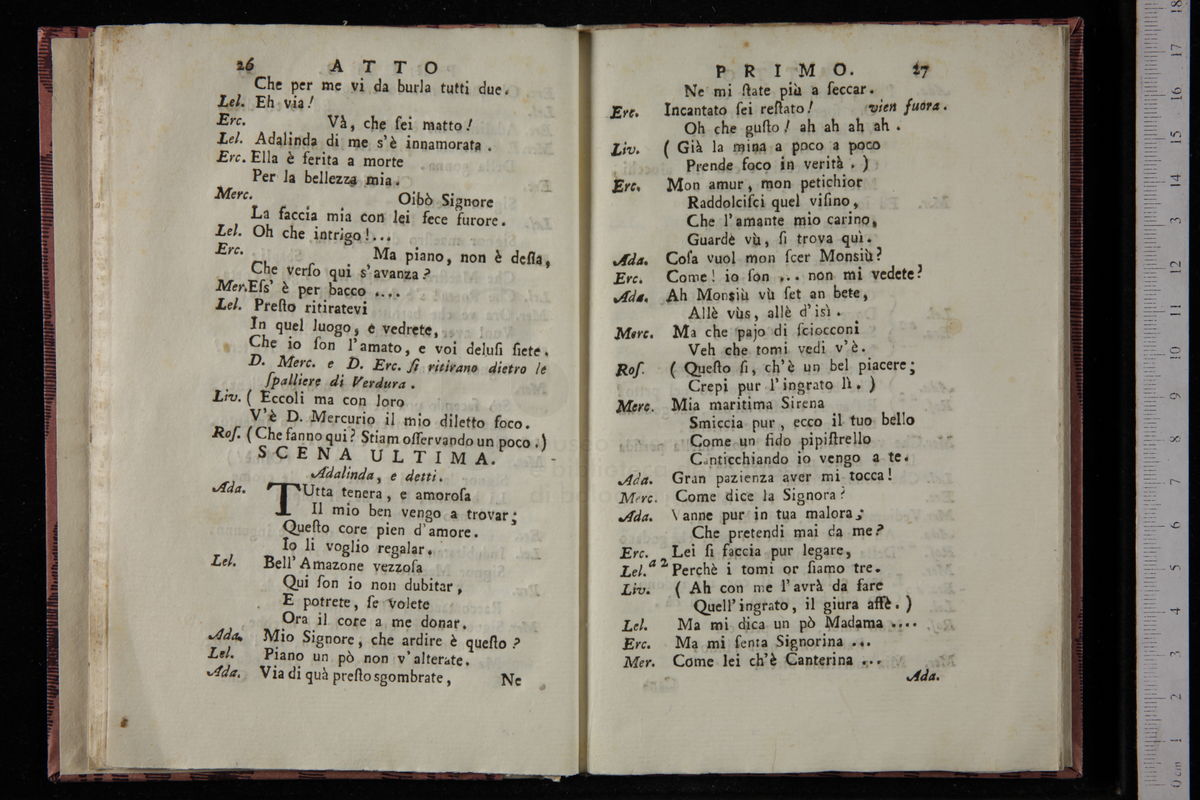 26 ATTO
Che per me vi da burla tutti due.
Lel. Eh via!
Erc. Và, che ſei matto!
Lel. Adalinda di me s'è innamorata.
Erc. Ella è ferita a morte
Per la bellezza mia.
Merc. Oibò Signore
La faccia mia con lei fece furore.
Lel. Oh che intrigo!...
Erc. Ma piano, non è deſſa,
Che verſo qui s'avanza?
Mer. Eſs' è per bacco ....
Lel. Preſto ritiratevi
In quel luogo, e vedrete,
Che io ſon l'amato, e voi deluſi ſiete.
D. Merc. e D. Erc. ſi ritirano dietro le
ſpalliere di Verdura.
Liv. ( Eccoli ma con loro
V'è D. Mercurio il mio diletto foco.
Roſ. (Che fanno qui? Stiam oſſervando un poco.)
SCENA ULTIMA.
Adalinda, e detti.
Ada. TUtta tenera, e amoroſa
Il mio ben vengo a trovar;
Queſto core pien d'amore.
Io li voglio regalar.
Lel. Bell' Amazone vezzoſa
Qui ſon io non dubitar,
E potrete, ſe volete
Ora il core a me donar.
Ada. Mio Signore, che ardire è queſto?
Lel. Piano un pò non v'alterate.
Ada. Via di quà preſto sgombrate,
Ne
PRIMO. 27
Ne mi ſtate più a ſeccar.
Erc. Incantato ſei reſtato! vien fuora.
Oh che guſto! ah ah ah ah.
Liv. ( Già la mina a poco a poco
Prende foco in verità. )
Erc. Mon amur, mon petichior
Raddolciſci quel viſino,
Che l'amante mio carino,
Guardè vù, ſi trova quì.
Ada. Coſa vuol mon ſcer Monsiù?
Erc. Come! io ſon ... non mi vedete?
Ada. Ah Monsiù vù ſet an bete,
Allè vùs, allè d'isì.
Merc. Ma che pajo di ſciocconi
Veh che tomi vedi v'è.
Roſ. ( Queſto ſi, ch'è un bel piacere;
Crepi pur l'ingrato lì. )
Merc. Mia maritima Sirena
Smiccia pur, ecco il tuo bello
Come un fido pipiſtrello
Canticchiando io vengo a te.
Ada. Gran pazienza aver mi tocca!
Merc. Come dice la Signora?
Ada. Vanne pur in tua malora;
Che pretendi mai da me?
Erc. Lei ſi faccia pur legare,
Lel. a 2 Perchè i tomi or ſiamo tre.
Liv. ( Ah con me l'avrà da fare
Quell' ingrato, il giura affè. )
Lel. Ma mi dica un pò Madama ....
Erc. Ma mi ſenta Signorina ...
Mer. Come lei ch'è Canterina ...
Ada.